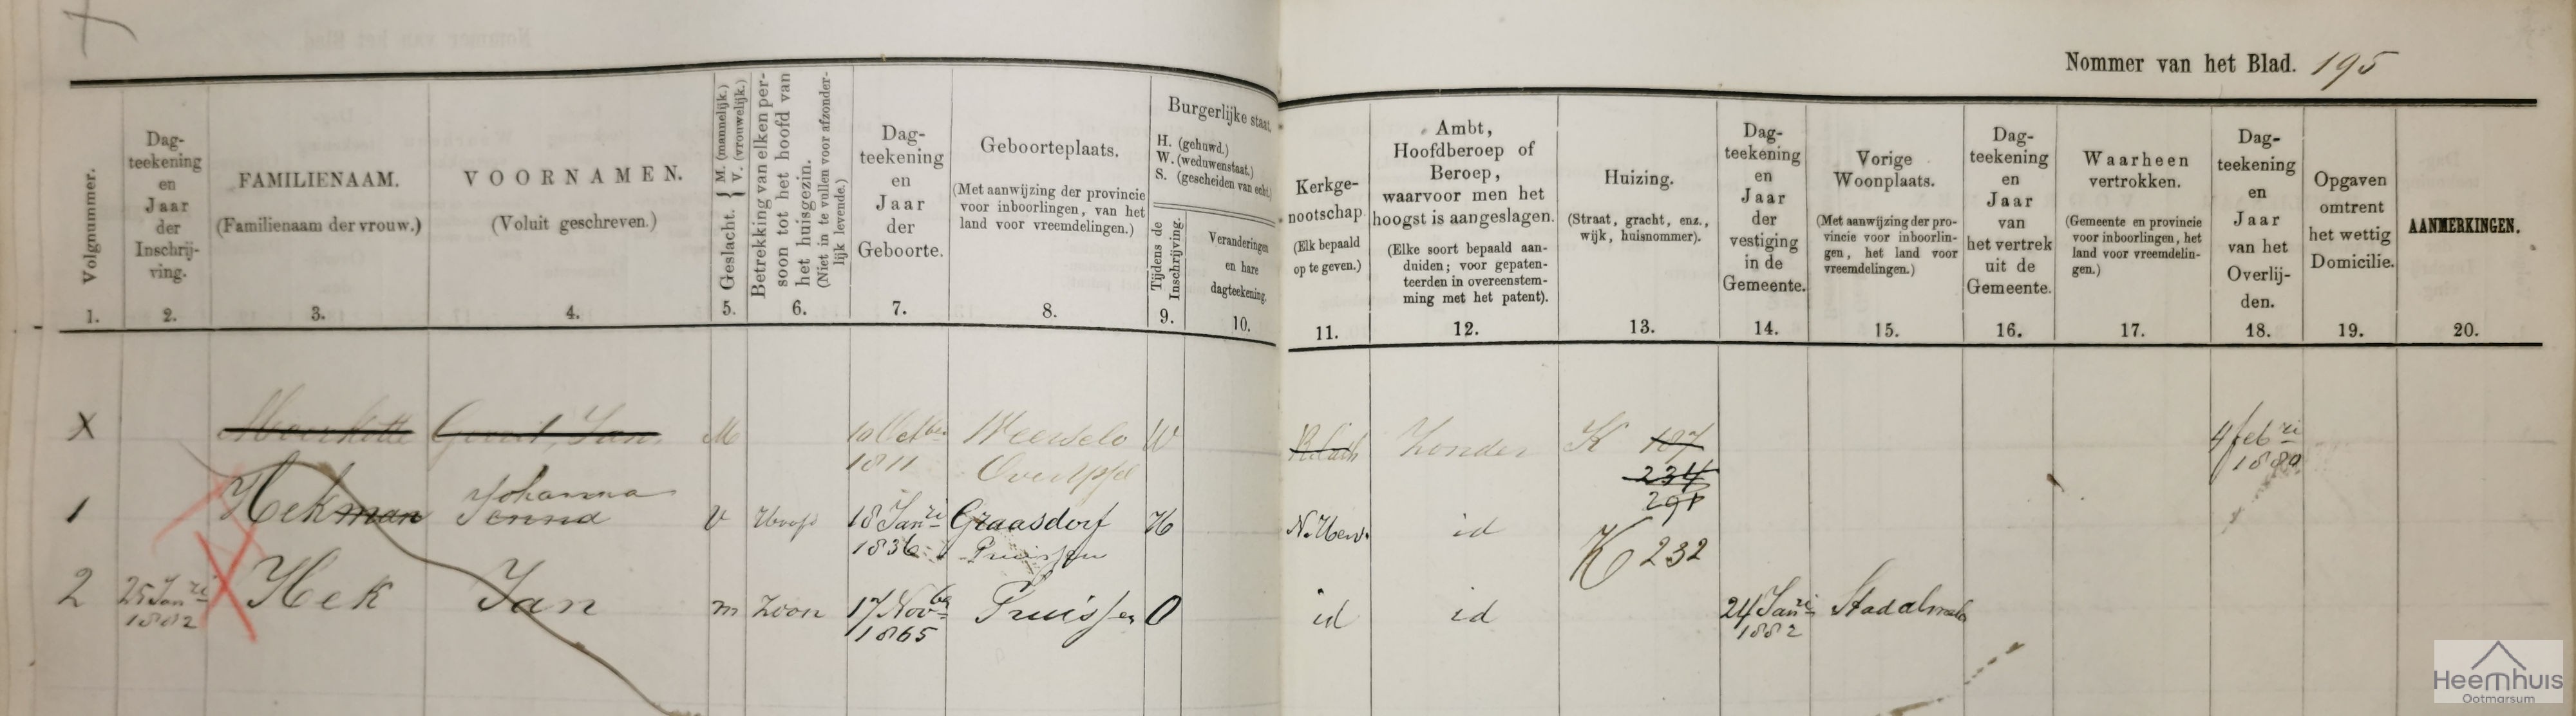 Nommer van het Blad. 195
Volgnummer.
1.
Dag-
teekening
en
Jaar
der
Inschrij-
ving.
2.
FAMILIENAAM.
(Familienaam der vrouw.)
3.
VOORNAMEN.
(Voluit geschreven.)
4.
Geslacht. { M. (mannelijk.)
V. (vrouwelijk.)
5.
Betrekking van elken per-
soon tot het hoofd van
het huisgezin.
(Niet in te vullen voor afzonder-
lijk levende.)
6.
Dag-
teekening
en
Jaar
der
Geboorte.
7.
Geboorteplaats.
(Met aanwijzing der provincie
voor inboorlingen, van het
land voor vreemdelingen.)
8.
Burgerlijke staat.
H. (gehuwd.)
W. (weduwenstaat.)
S. (gescheiden van echt.)
Tijdens de
Inschrijving.
9.
Veranderingen
en hare
dagteekening.
10.
Kerkge-
nootschap.
(Elk bepaald
op te geven.)
11.
Ambt,
Hoofdberoep of
Beroep,
waarvoor men het
hoogst is aangeslagen.
(Elke soort bepaald aan-
duiden; voor gepaten-
teerden in overeenstem-
ming met het patent).
12.
Huizing.
(Straat, gracht, enz.,
wijk, huisnommer).
13.
Dag-
teekening
en
Jaar
der
vestiging
in de
Gemeente.
14.
Vorige
Woonplaats.
(Met aanwijzing der pro-
vincie voor inboorlin-
gen, het land voor
vreemdelingen.)
15.
Dag-
teekening
en
Jaar
van
het vertrek
uit de
Gemeente.
16.
Waarheen
vertrokken.
(Gemeente en provincie
voor inboorlingen, het
land voor vreemdelin-
gen.)
17.
Dag-
teekening
en
Jaar
van het
Overlij-
den.
18.
Opgaven
omtrent
het wettig
Domicilie.
19.
AANMERKINGEN.
20.
X Gerrit Jan M 10 Octber Weerselo W Zonder K 107 4 febri
1811 Overijssel 234 1880
291
Johanna
1 Hekman Jenna V Hoofd 18 Janri Graasdorf H N. Herv. id
1836 Pruissen K 232
2 25 Janri Hek Jan m Zoon 17 Novbr Pruissen O id id 24 Janri
1882 1865 1882
Heemhuis
Ootmarsum